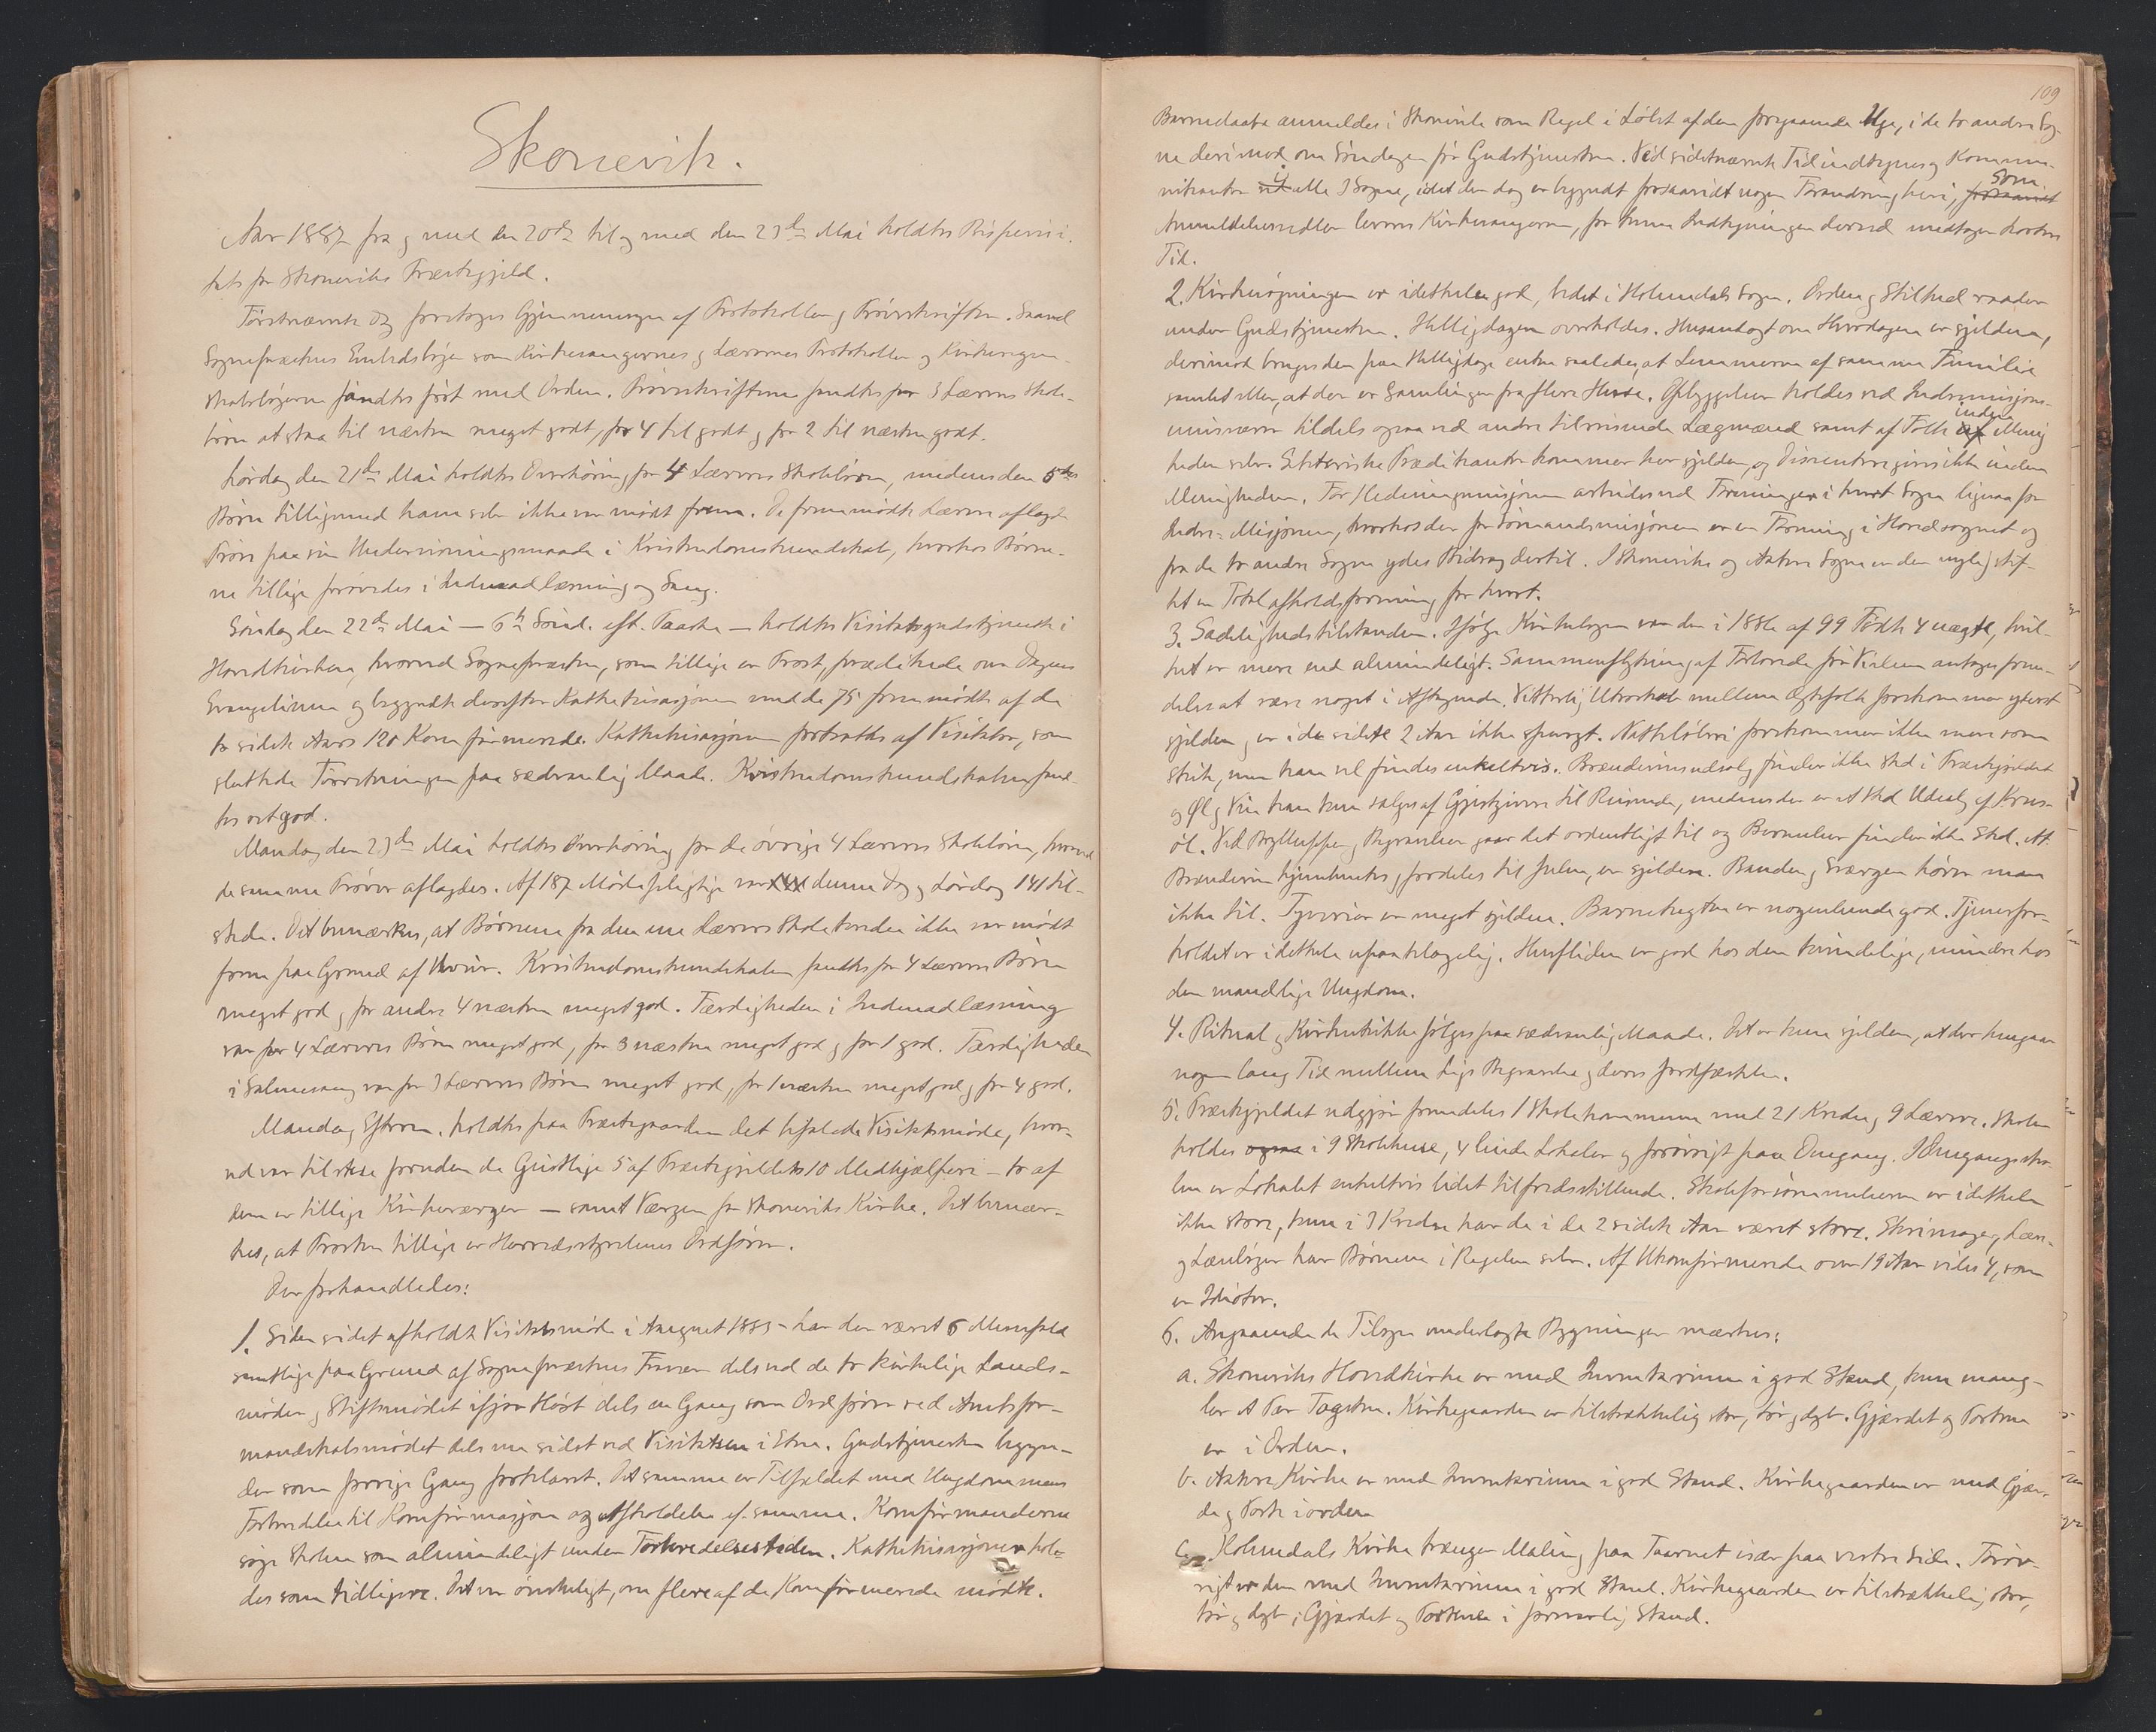 Skonevik.
Aar 1887 fra og med den 20de til og med den 23de Mai holdtes Bispevisi-
tats for Skoneviks Præstegjeld.
Førstnævnte Dag foretoges Gjennemsyn af Protokoller og Prøveskrifter. Saavel
Sognepræstens Embedsbøger som Kirkesangernes og Lærernes Protokoller og Kirkeregn-
skabsbøgerne fandtes ført med Orden. Prøveskrifterne fandtes for 3 Læreres Skole-
børn at staa til næsten meget godt, for 4 til godt og for 2 til næsten godt.
Lørdag den 21de Mai holdtes Overhøring for 4 Læreres Skolebørn, medens den 5tes
Børn tilligemed ham selv ikke var mødt frem. De fremmødte Lærere aflagde
Prøve paa sin Undervisningsmaade i Kristendomskundskab, hvorhos Børne-
ne tillige prøvedes i Indenadlæsning og Sang.
Søndag den 22de Mai — 6te Sønd. eft. Paaske — holdtes Visitatsgudstjeneste i
Hovedkirken, hvorved Sognepræsten, som tillige er Provst, prædikede over Dagens
Evangelium og begyndte derefter Kathekisasjonen med de 75 fremmødte af de
to sidste Aars 120 Konfirmerede. Kathekisasjonen fortsattes af Visitator, som
sluttede Forretningen paa sædvanlig Maade. Kristendomskundskaben fand-
tes ret god.
Mandag den 23de Mai holdtes Overhøring for de øvrige 4 Læreres Skolebørn, hvorved
de samme Prøver aflagdes. Af 187 Mødepligtige var denne Dag og Lørdag 141 til-
stede. Det bemærkes, at Børnene fra den ene Lærers Skolekredse ikke var mødt
frem paa Grund af Uveir. Kristendomskundskaben fandtes for 4 Læreres Børn
meget god og for andre 4 næsten meget god. Færdigheden i Indenadlæsning
var for 4 Læreres Børn meget god, for 3 næsten meget god og for 1 god. Færdigheden
i Salmesang var for 3 Læreres Børn meget god, for 1 næsten meget god og for 4 god.
Mandag Efterm. holdtes paa Præstegaarden det befalede Visitatsmøde, hvor-
ved var tilstede foruden de Geistlige 5 af Præstegjeldets 10 Medhjælpere — to af
dem er tillige Kirkeværger — samt Værgen for Skoneviks Kirke. Det bemær-
kes, at Provsten tillige er Herredsstyrelsens Ordfører.
Der forhandledes:
1. Siden sidst afholdt Visitatsmøde i August 1885 har der været 6 Messefald
samtlige paa Grund af Sognepræstens Fravær dels ved de to kirkelige Lands-
møder og Stiftsmødet ifjor Høst dels en Gang som Ordfører ved Amtsfor-
mandskabsmødet dels nu sidst ved Visitatsen i Etne. Gudstjenesten begyn-
der som forrige Gang forklaret. Det samme er Tilfældet med Ungdommens
Forberedelse til Konfirmasjon og Afholdelse af samme. Konfirmanderne
søge Skolen som almindeligt under Forberedelsestiden. Kathekisasjonen hol-
des som tidligere. Det var ønskeligt, om flere af de Konfirmerede mødte.
109
Barnedaaben anmeldes i Skonevik som Regel i Løbet af den foregaaende Uge, i de to andre Sog-
ne derimod om Søndagen før Gudstjenesten. Ved sidstnævnte Tid indtegnes og Kommu-
nikanter i alle 3 Sogne, idet der dog er begyndt forsaavidt nogen Forandring heri, som
Anmeldelsessedler leveres Kirkesangeren, for hvem Indtegningen derved medtager kortere
Tid.
2. Kirkesøgningen er idethele god, bedst i Holmedals Sogn. Orden og Stilhed raader
under Gudstjenesten. Helligdagen overholdes. Husandagt om Hverdagene er sjelden,
derimod bruges den paa Helligdage enten saaledes, at Lemmerne af samme Familie
samles eller, at der er Samlinger fra flere Huse. Opbyggelser holdes ved Indremisjons-
emissærer tildels ogsaa ved andre tilreisende Lægmænd samt af Folk inden Menig
heden selv. Sekteriske Prædikanter kommer her sjelden, og Dissentere gives ikke inden
Menigheden. For Hedningmisjonen arbeides ved Foreninger i hvert Sogn ligesaa for
Indre-Misjonen, hvorhos der for Sømandsmisjonen er en Forening i Hovedsognet og
fra de to andre Sogne ydes Bidrag dertil. I Skoneviks og Aakre Sogne er der nylig stif-
tet en Totalafholdsforening for hvert.
3. Sædelighedstilstanden. Ifølge Kirkebogen var der i 1886 af 99 Fødte 4 uægte, hvil-
ket er mere end almindeligt. Sammenflytning af Forlovede før Vielsen antages frem-
deles at være noget i Aftagende. Vitterlig Utroskab mellem Ægtefolk forekommer yderst
sjelden og er i de sidste 2 Aar ikke spurgt. Natteløberi forekommer ikke mere som
Skik, men kan vel findes enkeltvis. Brændevinsudsalg finder ikke Sted i Præstegjeldet
og Øl og Vin kan kun sælges af Gjestgivere til Reisende, medens der er et Sted Udsalg af Krus-
øl. Ved Bryllupper og Begravelser gaar det ordentligt til og Beruselser finder ikke Sted. At
Brændevin hjembentes og fordeles til Julen, er sjelden. Banden og Sværgen hører man
ikke til. Tyverier er meget sjelden. Barnetugten er nogenlunde god. Tjenerfor-
holdet er idethele upaaklagelig. Husfliden er god hos den kvindelige, mindre hos
den mandlige Ungdom.
4. Ritual og Kirkeskikke følges paa sædvanlig Maade. Det er kun sjelden, at der hengaar
nogen lang Tid mellem Ligs Begravelse og deres Jordfæstelse.
5. Præstegjeldet udgjør fremdeles 1 Skolekommune med 21 Kredse og 9 Lærere. Skolen
holdes i 9 Skolehuse, 4 leiede Lokaler og forøvrigt paa Omgang. I Omgangssko-
len er Lokalet enkeltvis lidet tilfredsstillende. Skoleforsømmelserne er idethele
ikke store, kun i 3 Kredse har de i de 2 sidste Aar været store. Skrivesager og Læse-
og Lærebøger har Børnene i Regelen selv. Af Ukonfirmerede over 19 Aar vides 4, som
er Idioter.
6. Angaaende de Tilsyn underlagte Bygninger mærkes:
a. Skoneviks Hovedkirke er med Inventarium i god Stand, kun mang-
ler et Par Tagsten. Kirkegaarden er tilstrækkelig stor, tør og dyb. Gjærdet og Portene
er i Orden.
b. Aakre Kirke er med Inventarium i god Stand. Kirkegaarden er med Gjær-
de og Port i orden
c. Holmedals Kirke trænger Maling paa Taarnet især paa vestre Side. Forøv-
rigt er den med Inventarium i god Stand. Kirkegaarden er tilstrækkelig stor,
tør og dyb; Gjærdet og Portene i forsvarlig Stand.